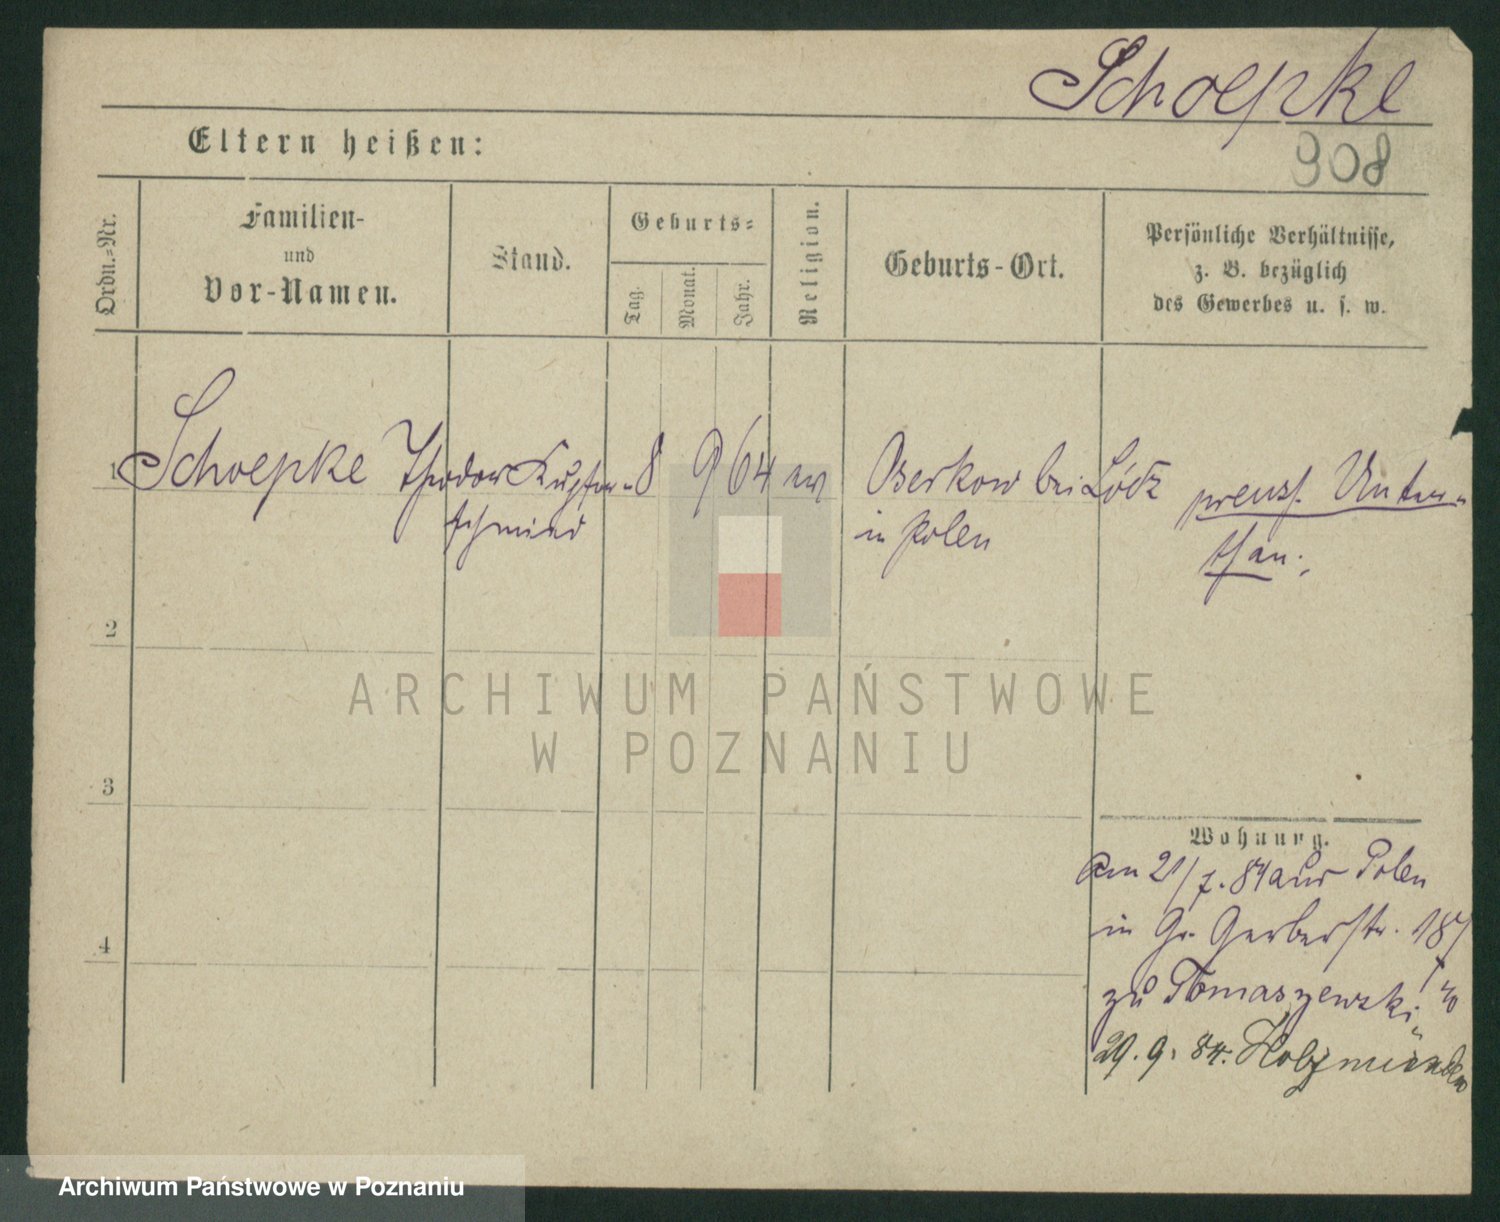 Schoepke
908
Eltern heißen:
Ordn.-Nr.
Familien-
und
Vor-Namen.
Stand.
Geburts-
Tag.
Monat.
Jahr.
Religion.
Geburts-Ort.
Persönliche Verhältnisse,
z. B. bezüglich
des Gewerbes u. s. w.
1 Schoepke Theodor Kupfer- 8 9 64 ev Oserkow bei Lódz preuss. Unter-
schmied in Polen than.
2
3
4
Wohnung.
Am 21/7. 84 aus Polen
in Gr. Gerberstr. 18
zu Tomaszewski
29. 9. 84. Holzminden
ARCHIWUM PAŃSTWOWE
W POZNANIU
Archiwum Państwowe w Poznaniu